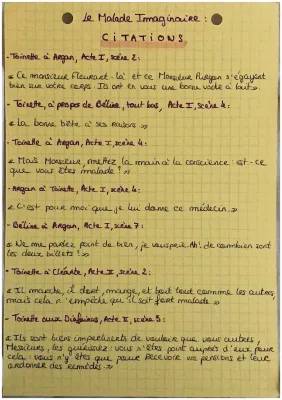 Le Malade Imaginaire :
CITATIONS
- Toinette à Argan, Acte I, scène 2:
« Ce monsieur Fleurant-là et ce Monsieur Purgon s'égayent
bien sur votre corps. Ils ont en vous une bonne vache à lait ».
- Toinette, à propos de Béline, tout bas, Acte I, scène 4:
« La bonne bête a ses raisons »
- Toinette à Argan, Acte I, scène 4:
« Mais Monsieur, mettez la main à la conscience : est-ce
que vous êtes malade ! »
- Argan à Toinette, Acte I, scène 4:
« C'est pour moi que je lui donne ce médecin. »
- Béline à Argan, Acte I, scène 7:
« Ne me parlez point de bien, je vous prie. Ah! de combien sont
les deux billets ! »
- Toinette à Cléante, Acte II, scène 2:
« Il marche, il dort, mange, et boit tout comme les autres,
mais cela n'empêche qu'il soit fort malade »
- Toinette aux Diafoirus, Acte II, scène 5:
« Ils sont bien impertinents de vouloir que vous autres,
Messieurs, les guérissiez : vous n'êtes point auprès d'eux pour
cela ; vous n'y êtes que pour recevoir vos pensions et leur
ordonner des remèdes. »